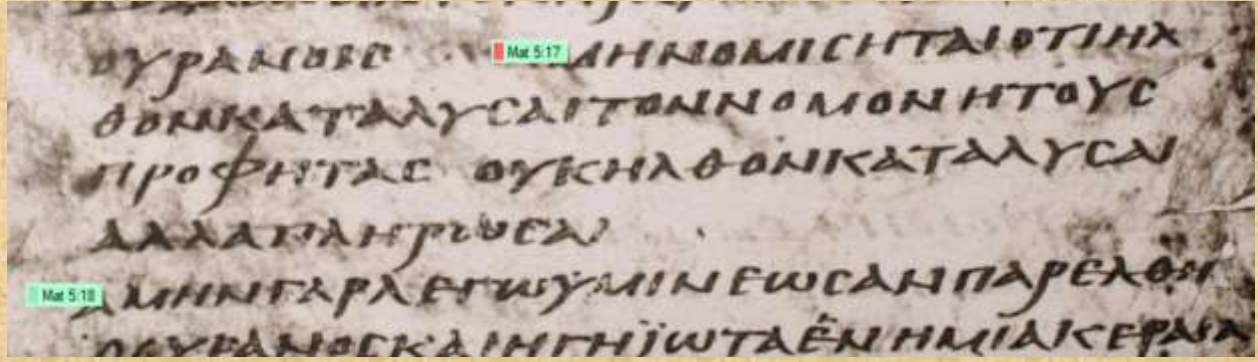 ΟΥΡΑΝΟΙΣ Mat 5:17 ΜΗΝΟΜΙCΗΤΑΙΟΤΙΗΛ
ΘΟΝΚΑΤΑΛΥCΑΙΤΟΝΝΟΜΟΝΗΤΟΥC
ΠΡΟΦΗΤΑC ΟΥΚΗΛΘΟΝΚΑΤΑΛΥCΑΙ
ΑΛΛΑΠΛΗΡΩCΑΙ
Mat 5:18 ΑΜΗΝΓΑΡΛΕΓΩΥΜΙΝΕΩCΑΝΠΑΡΕΛΘΗ
ΟΟΥΡΑΝΟCΚΑΙΗΓΗΪΩΤΑΕΝΗΜΙΑΚΕΡΑΙΑ